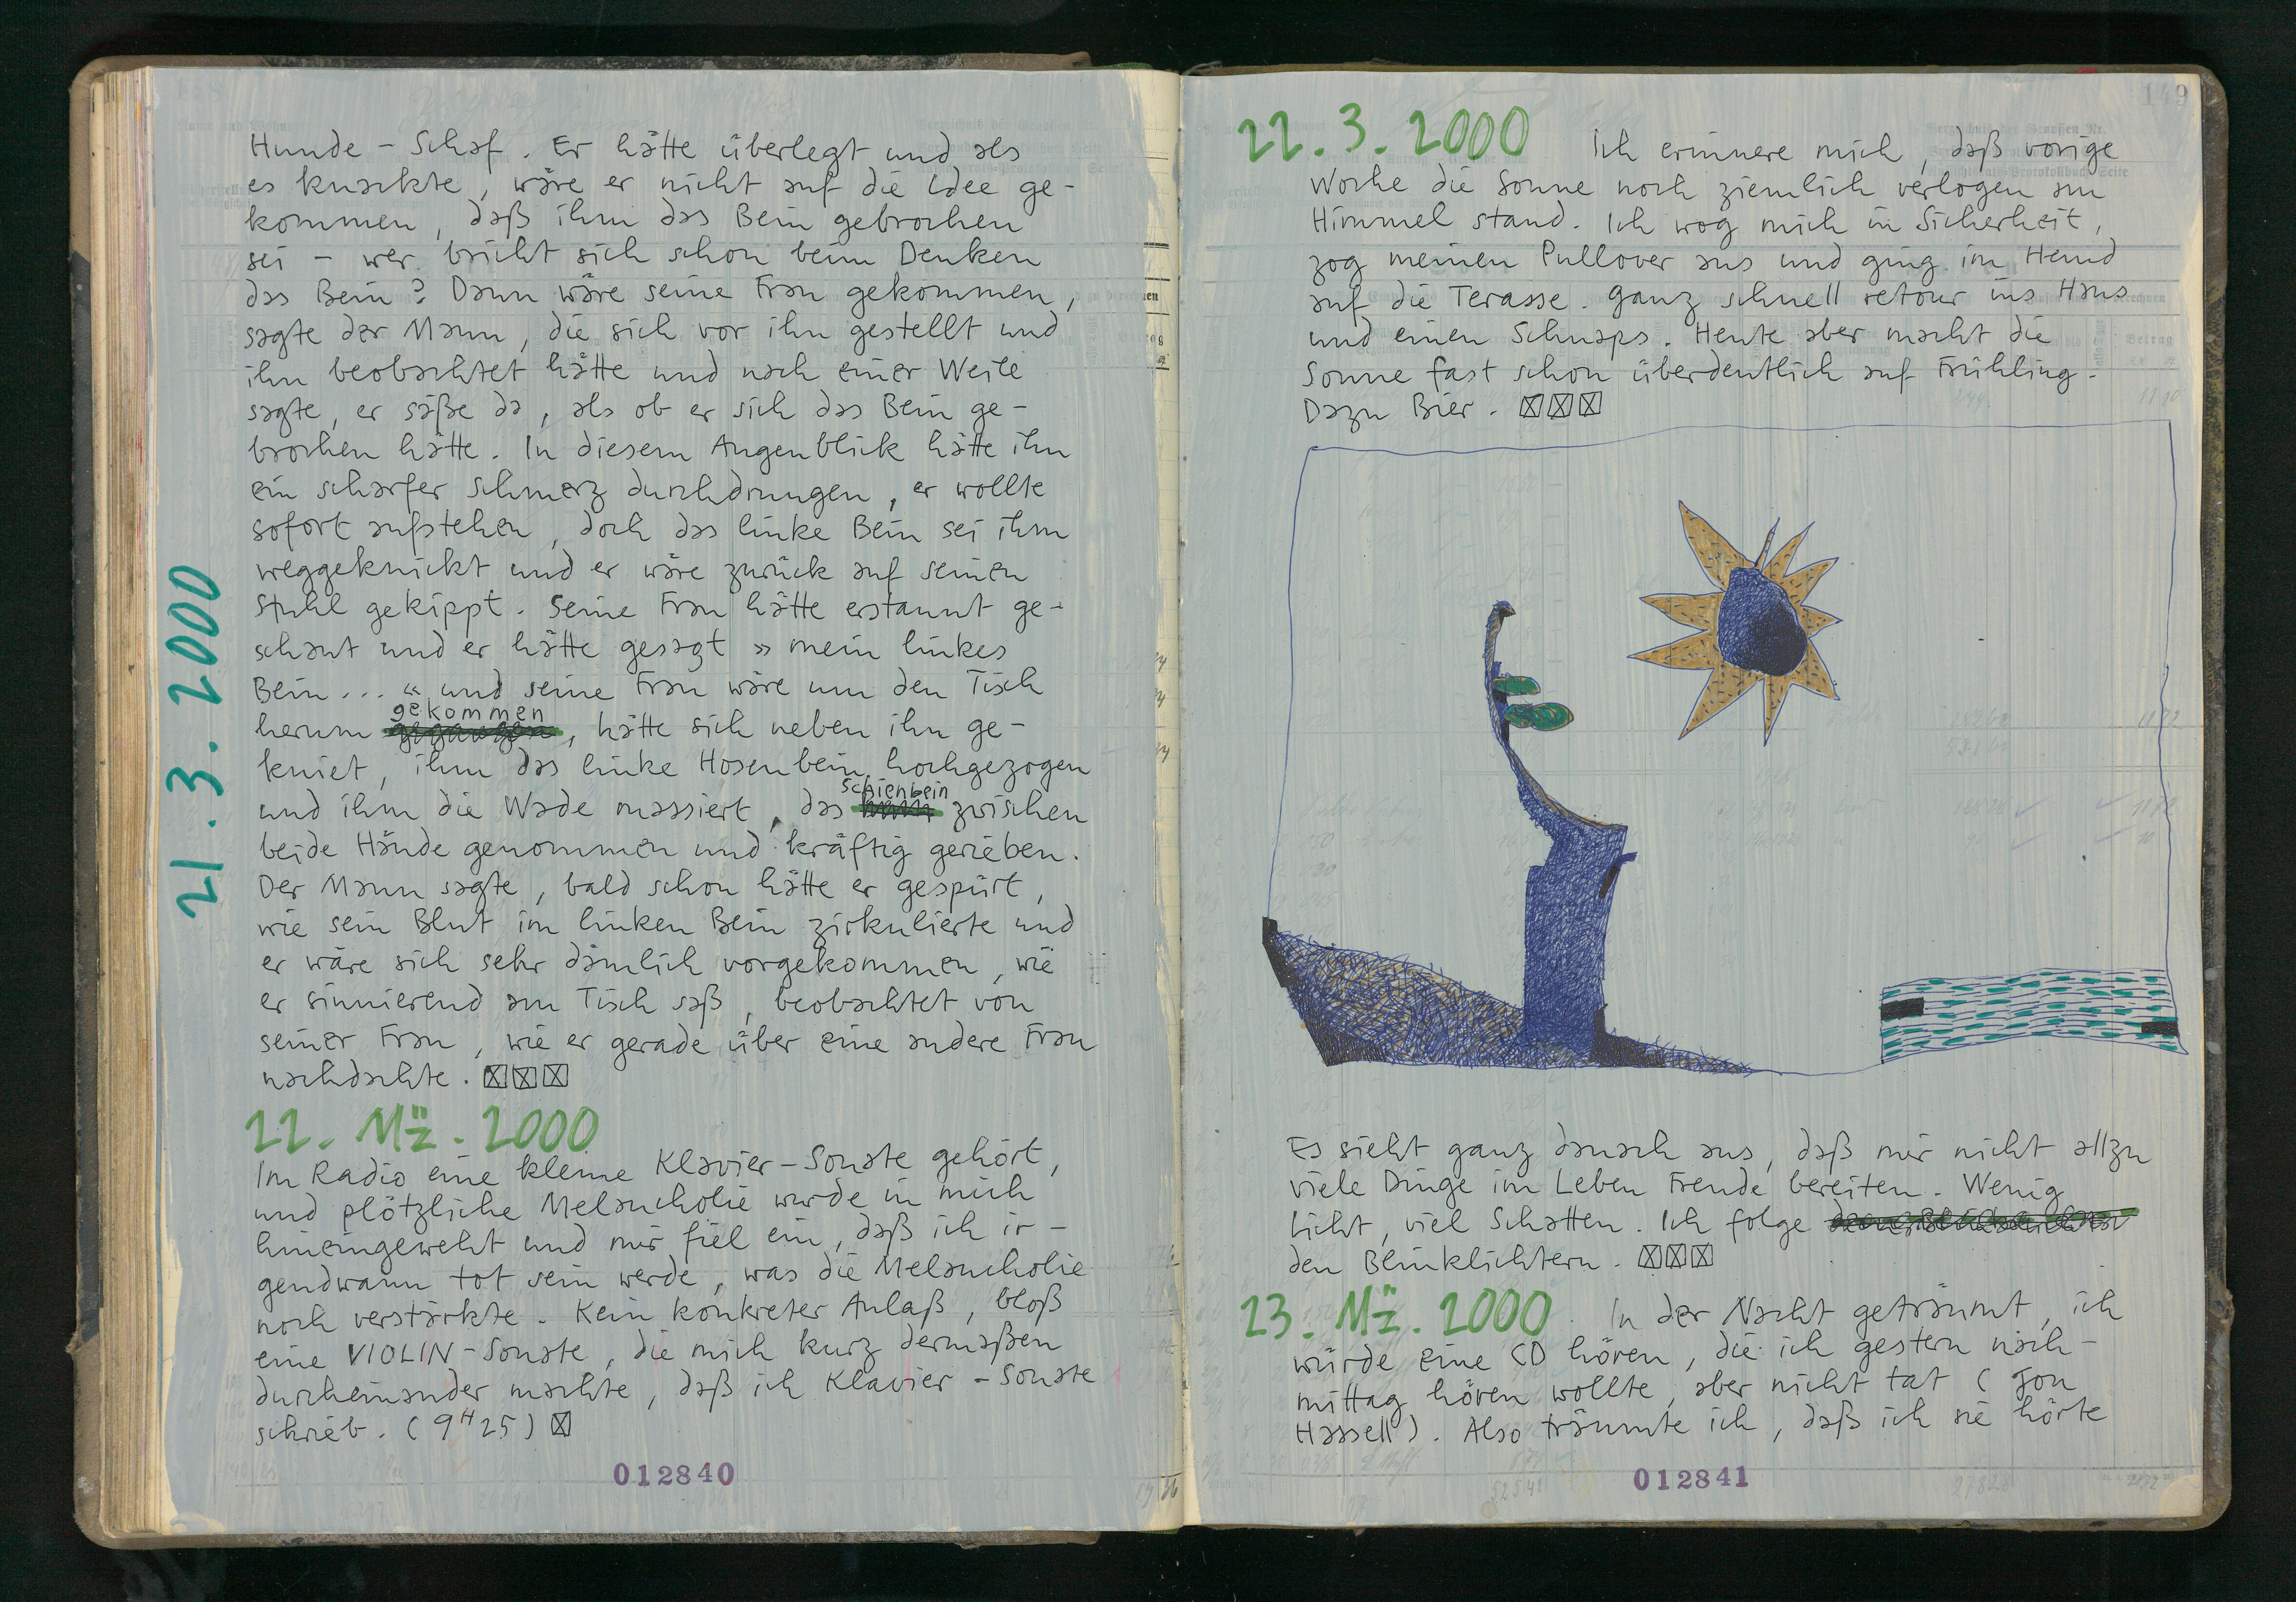 21.3.2000
Hunde-Schaf. Er hätte überlegt und als
es knackte, wäre er nicht auf die Idee ge-
kommen, daß ihm das Bein gebrochen
sei – wer bricht sich schon beim Denken
das Bein? Dann wäre seine Frau gekommen,
sagte der Mann, die sich vor ihn gestellt und
ihn beobachtet hätte und nach einer Weile
sagte, er säße da, als ob er sich das Bein ge-
brochen hätte. In diesem Augenblick hätte ihn
ein scharfer Schmerz durchdrungen, er wollte
sofort aufstehen, doch das linke Bein sei ihm
weggeknickt und er wäre zurück auf seinen
Stuhl gekippt. Seine Frau hätte erstaunt ge-
schaut und er hätte gesagt »mein linkes
Bein...« und seine Frau wäre um den Tisch
herum gekommen, hätte sich neben ihn ge-
kniet, ihm das linke Hosenbein hochgezogen
und ihm die Wade massiert, das Schienbein zwischen
beide Hände genommen und kräftig gerieben.
Der Mann sagte, bald schon hätte er gespürt,
wie sein Blut im linken Bein zirkulierte und
er wäre sich sehr dämlich vorgekommen, wie
er sinnierend am Tisch saß, beobachtet von
seiner Frau, wie er gerade über eine andere Frau
nachdachte. ☒☒☒
22. Mz. 2000
Im Radio eine kleine Klavier-Sonate gehört,
und plötzliche Melancholie wurde in mich
hineingeweht und mir fiel ein, daß ich ir-
gendwann tot sein werde, was die Melancholie
noch verstärkte. Kein konkreter Anlaß, bloß
eine VIOLIN-Sonate, die mich kurz dermaßen
durcheinander machte, daß ich Klavier-Sonate
schrieb. (9H25) ☒
012840
149
22.3.2000 Ich erinnere mich, daß vorige
Woche die Sonne noch ziemlich verlogen am
Himmel stand. Ich wog mich in Sicherheit,
zog meinen Pullover aus und ging im Hemd
auf die Terasse. Ganz schnell retour ins Haus
und einen Schnaps. Heute aber macht die
Sonne fast schon überdeutlich auf Frühling.
Dazu Bier. ☒☒☒
Es sieht ganz danach aus, daß mir nicht allzu
viele Dinge im Leben Freude bereiten. Wenig
Licht, viel Schatten. Ich folge
den Blinklichtern. ☒☒☒
23. Mz. 2000. In der Nacht geträumt, ich
würde eine CD hören, die ich gestern nach-
mittag hören wollte, aber nicht tat (Jon
Hassell). Also träumte ich, daß ich sie hörte
012841